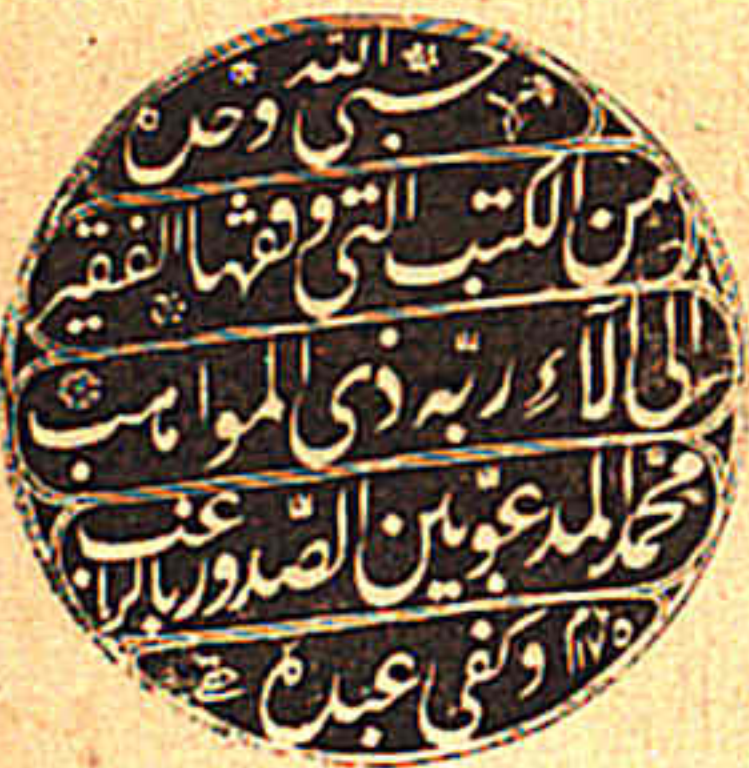 حسبى الله وحده
من الكتب التى وقفها الفقير
الى آلاء ربّه ذى المواهب
محمد المدعوّ بين الصّدور بالراغب
وكفى عبده